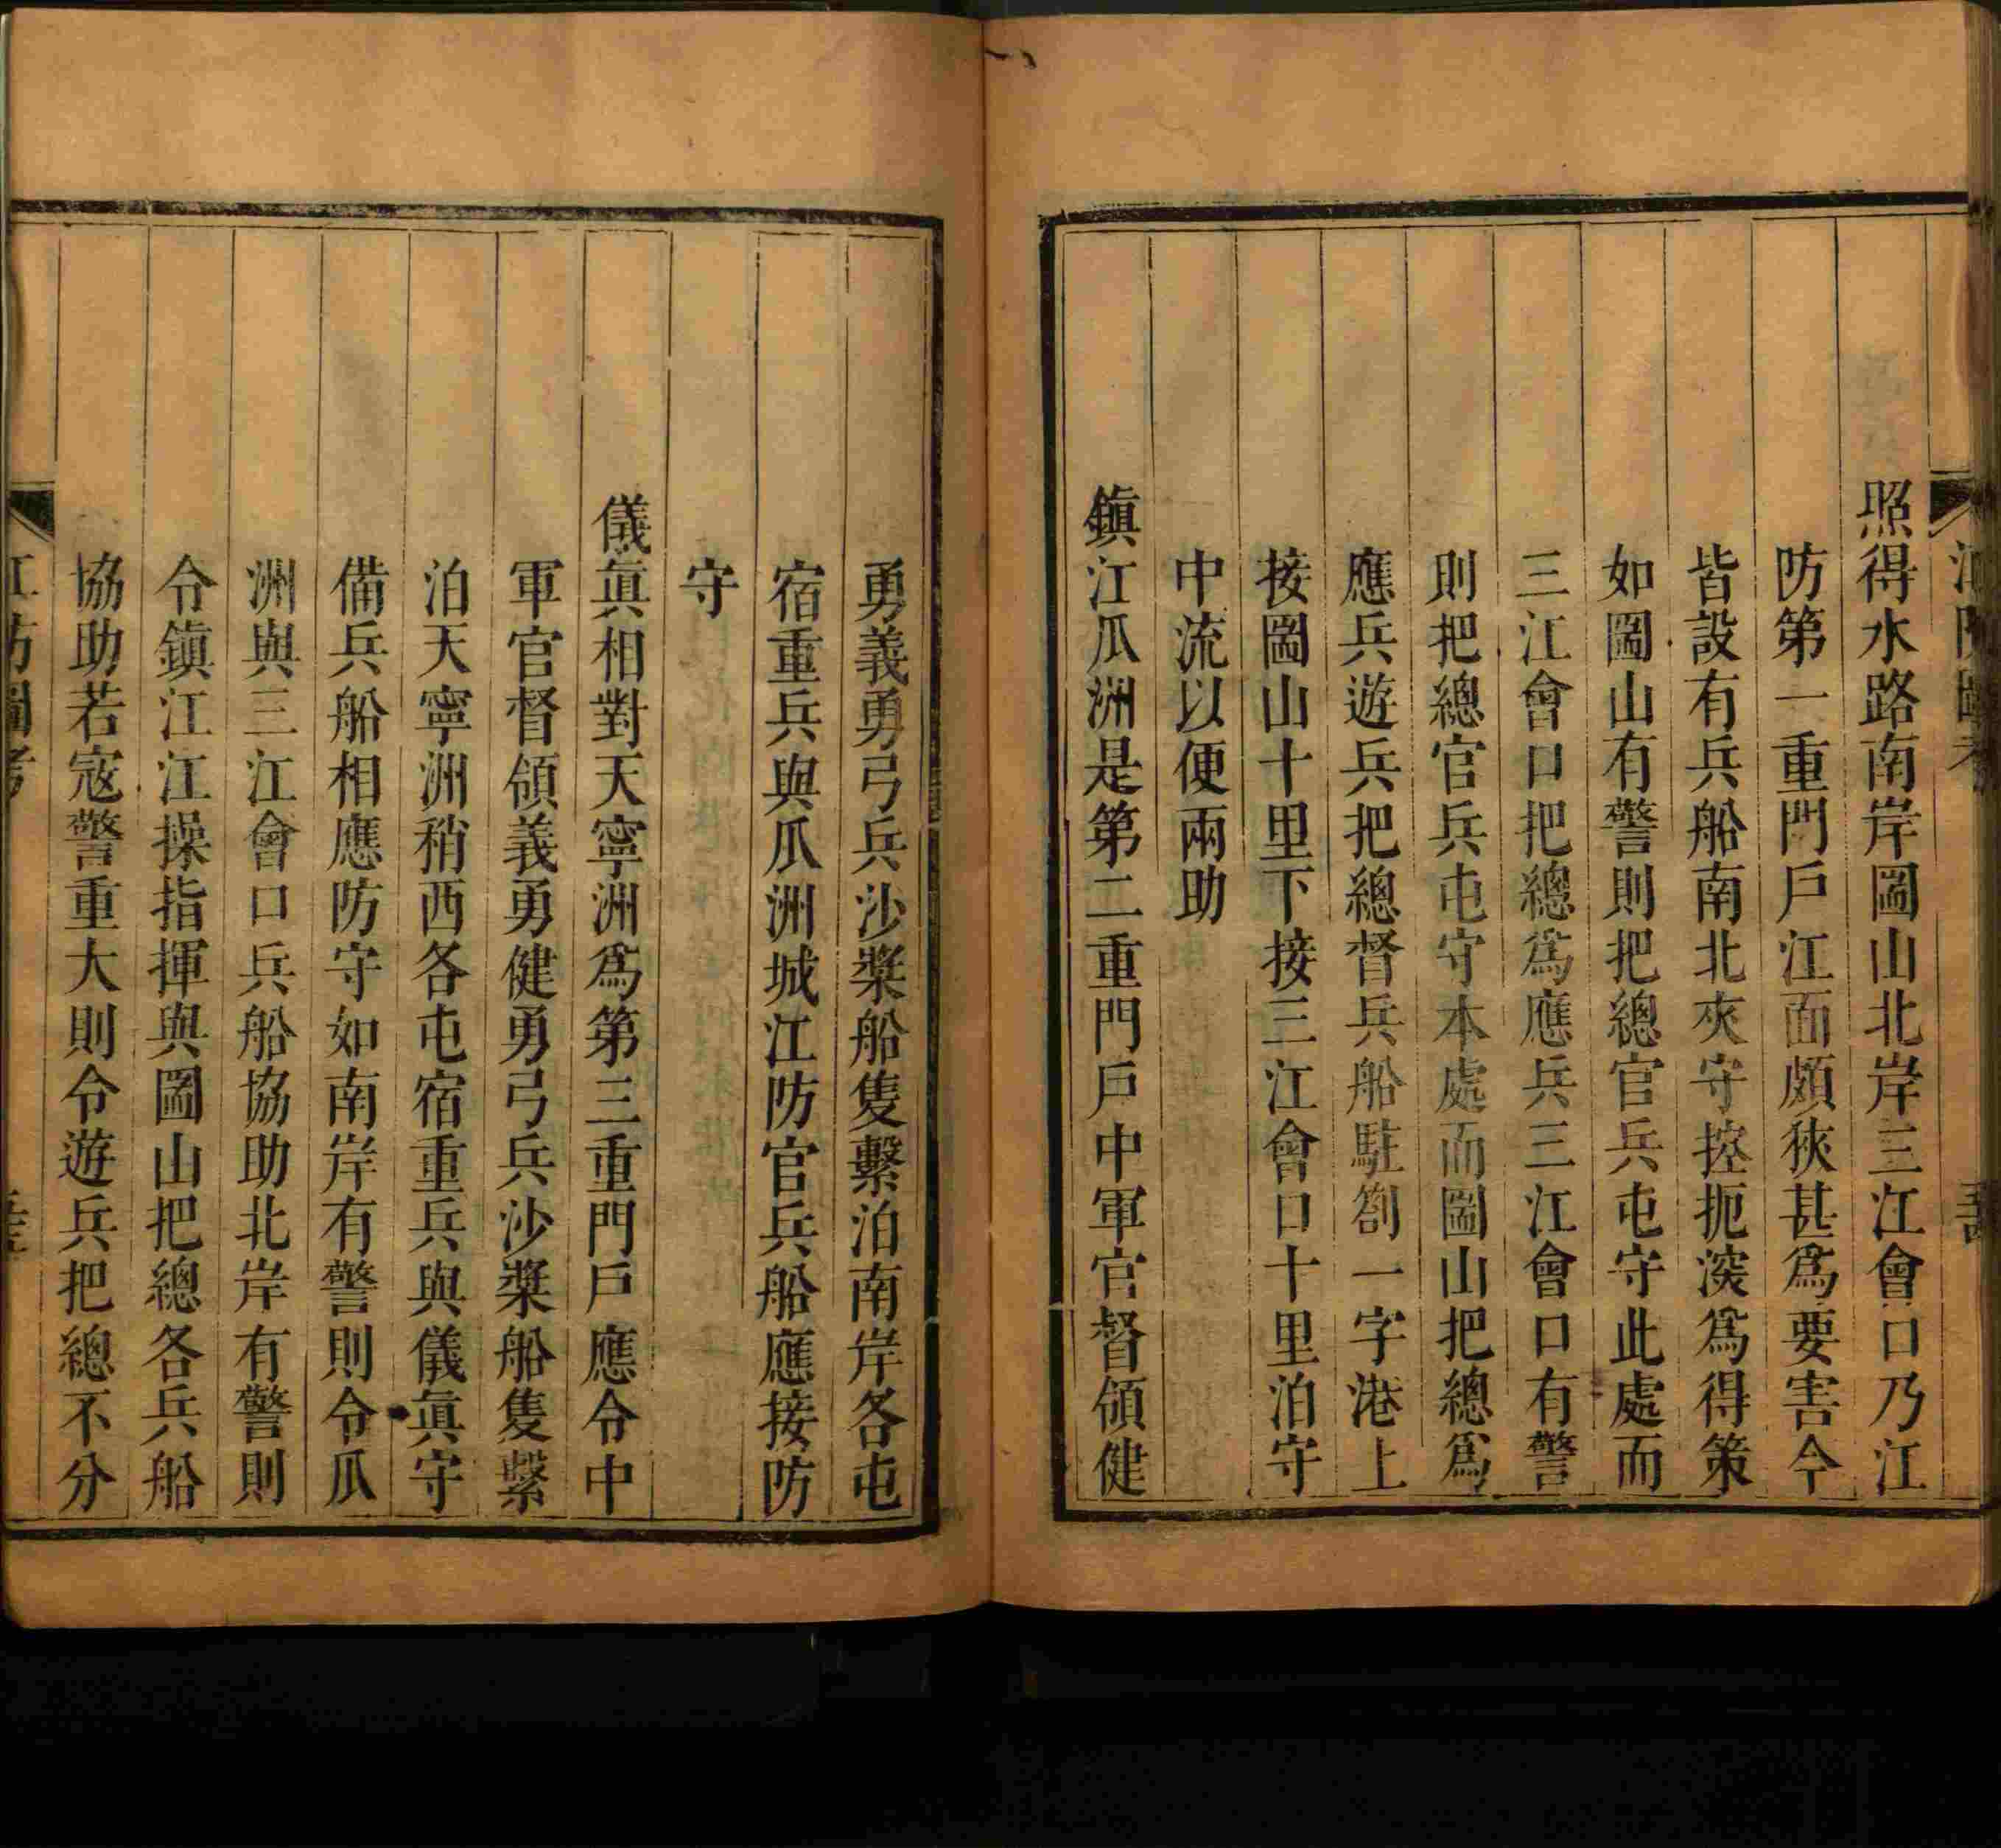 照得水路南岸圌山北岸三江會口乃江
防第一重門戶江面頗狹甚爲要害今
皆設有兵船南北夾守控扼深爲得策
如圌山有警則把總官兵屯守此處而
三江會口把總爲應兵三江會口有警
則把總官兵屯守本處而圌山把總爲
應兵遊兵把總督兵船駐劄一字港上
接圌山十里下接三江會口十里泊守
中流以便兩助
鎮江瓜洲是第二重門戶中軍官督領健
勇義勇弓兵沙槳船隻繫泊南岸各屯
宿重兵與瓜洲城江防官兵船應接防
守
儀眞相對天寧洲爲第三重門戶應令中
軍官督領義勇健勇弓兵沙槳船隻繫
泊天寧洲稍西各屯宿重兵與儀眞守
備兵船相應防守如南岸有警則令瓜
洲與三江會口兵船協助北岸有警則
令鎮江江操指揮與圌山把總各兵船
協助若寇警重大則令遊兵把總不分
江防圖考